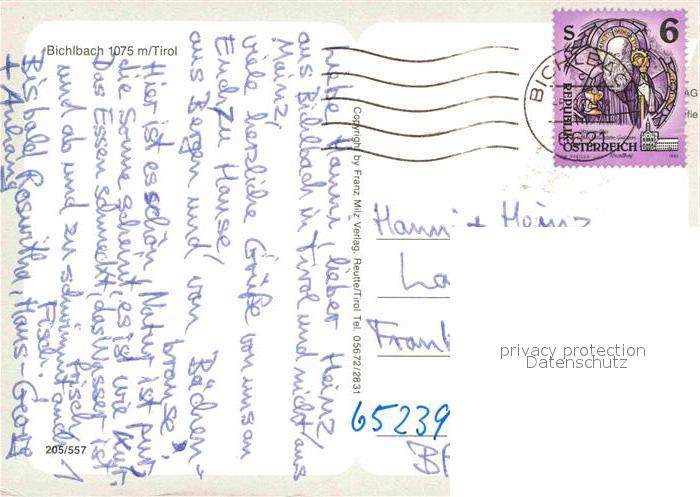 Bichlbach 1075 m/Tirol
Liebe Hanni, lieber Heinz
aus Bichlbach in Tirol und nicht aus
Mainz,
viele herzliche Grüße von uns an
Euch zu Hause,
aus Bergen und von Bächen
Hier ist es schön, Natur ist pur
die Sonne scheint, es ist wie Kur,
Das Essen schmeckt, das Wasser ist
frisch
und ab und zu schwimmt auch 1
Fisch.
Bis bald Roswitha, Hans-Georg
+ Anhang
205/557
Copyright by Franz Milz Verlag, Reutte/Tirol Tel. 05672/2831
S 6
REPUBLIK
ÖSTERREICH
Hanni + Heinz
La
Frank
65239
privacy protection
Datenschutz